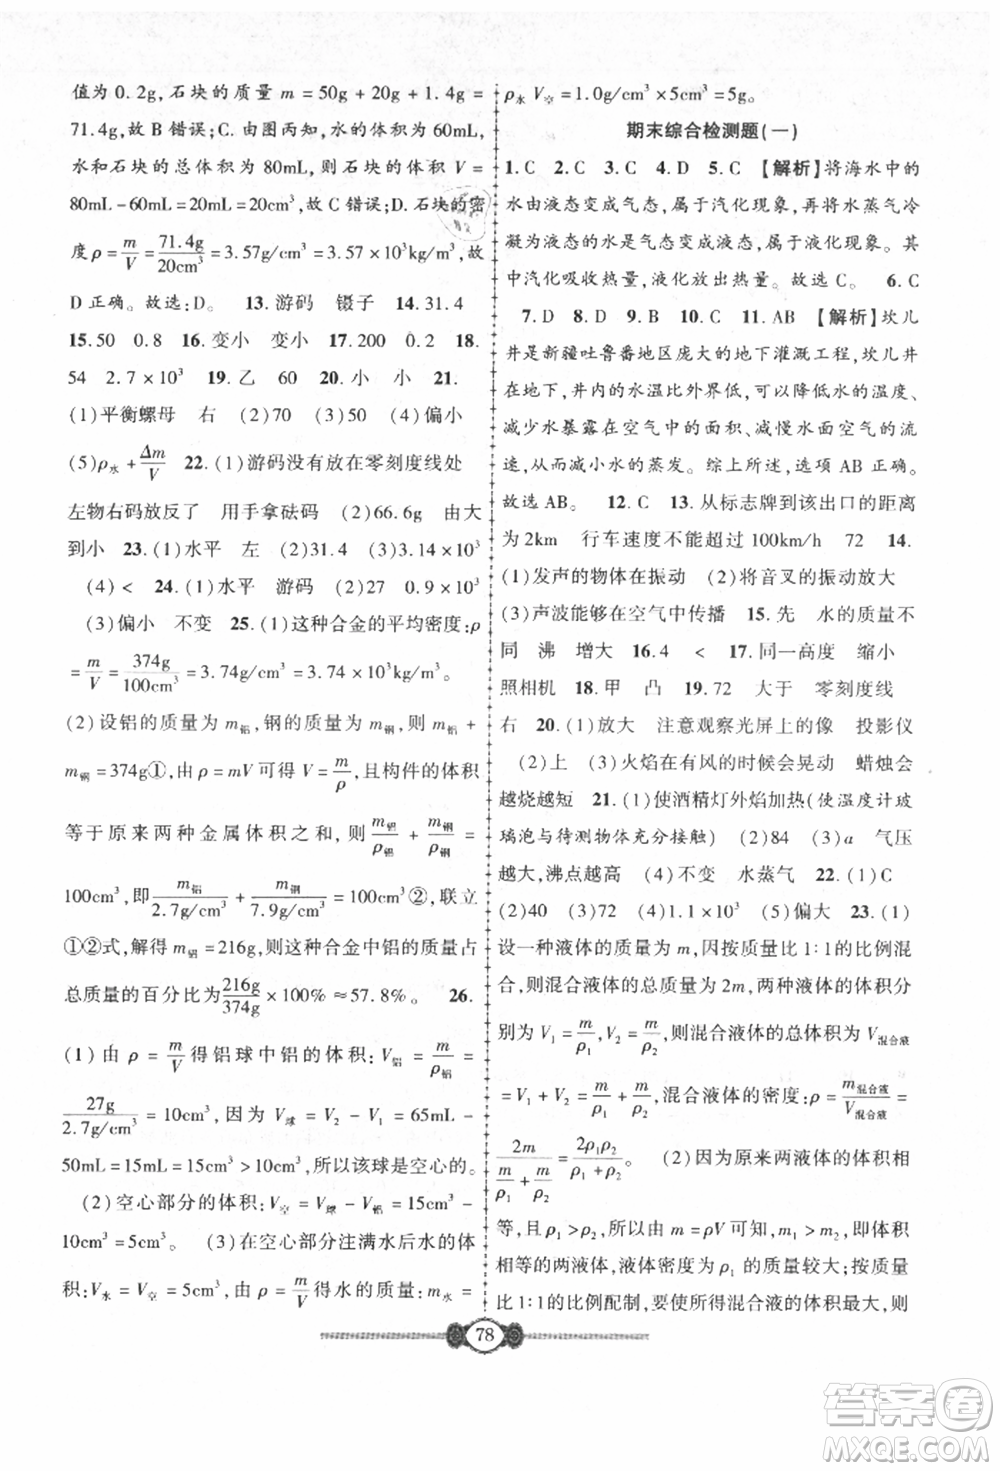 值为 0.2g,石块的质量 m = 50g + 20g + 1.4g =
71.4g,故 B 错误;C. 由图丙知,水的体积为60mL,
水和石块的总体积为80mL,则石块的体积 V =
80mL - 60mL = 20mL = 20cm³,故 C 错误;D. 石块的密
度 ρ = m/V = 71.4g/20cm³ = 3.57g/cm³ = 3.57 × 10³kg/m³,故
D 正确。故选:D。 13. 游码 镊子 14. 31.4
15. 50 0.8 16. 变小 变小 17. 200 0.2 18.
54 2.7 × 10³ 19. 乙 60 20. 小 小 21.
(1)平衡螺母 右 (2)70 (3)50 (4)偏小
(5)ρ水 + Δm/V 22. (1)游码没有放在零刻度线处
左物右码放反了 用手拿砝码 (2)66.6g 由大
到小 23. (1)水平 左 (2)31.4 (3)3.14 × 10³
(4) < 24. (1)水平 游码 (2)27 0.9 × 10³
(3)偏小 不变 25. (1)这种合金的平均密度:ρ
= m/V = 374g/100cm³ = 3.74g/cm³ = 3.74 × 10³kg/m³。
(2)设铝的质量为 m铝,钢的质量为 m钢,则 m铝 +
m钢 = 374g①,由 ρ = mV 可得 V = m/ρ,且构件的体积
等于原来两种金属体积之和,则 m铝/ρ铝 + m钢/ρ钢 =
100cm³,即 m铝/2.7g/cm³ + m钢/7.9g/cm³ = 100cm³②,联立
①②式,解得 m铝 = 216g,则这种合金中铝的质量占
总质量的百分比为 216g/374g × 100% ≈ 57.8%。 26.
(1)由 ρ = m/V 得铝球中铝的体积:V铝 = m/ρ铝 =
27g/2.7g/cm³ = 10cm³,因为 V球 = V2 - V1 = 65mL -
50mL = 15mL = 15cm³ > 10cm³,所以该球是空心的。
(2)空心部分的体积:V空 = V球 - V铝 = 15cm³ -
10cm³ = 5cm³。 (3)空心部分注满水后水的体
积:V水 = V空 = 5cm³,由 ρ = m/V 得水的质量:m水 =
ρ水 V空 = 1.0g/cm³ × 5cm³ = 5g。
期末综合检测题(一)
1. C 2. C 3. C 4. D 5. C 【解析】将海水中的
水由液态变成气态,属于汽化现象,再将水蒸气冷
凝为液态的水是气态变成液态,属于液化现象。其
中汽化吸收热量,液化放出热量。故选 C。 6. C
7. D 8. D 9. C 10. C 11. AB 【解析】坎儿
井是新疆吐鲁番地区庞大的地下灌溉工程,坎儿井
在地下,井内的水温比外界低,降低了水的温度、
减少水暴露在空气中的面积、减慢水面空气的流
速,从而减小水的蒸发。综上所述,选项 AB 正确。
故选 AB。 12. C 13. 从标志牌到该出口的距离
为2km 行车速度不能超过100km/h 72 14.
(1)发声的物体在振动 (2)将音叉的振动放大
(3)声波能够在空气中传播 15. 先 水的质量不
同 沸 增大 16. 4 < 17. 同一高度 缩小
照相机 18. 甲 凸 19. 72 大于 零刻度线
右 20. (1)放大 注意观察光屏上的像 投影仪
(2)上 (3)火焰在有风的时候会晃动 蜡烛会
越烧越短 21. (1)使酒精灯外焰加热(使温度计玻
璃泡与待测物体充分接触) (2)84 (3)a 气压
越大,沸点越高 (4)不变 水蒸气 22. (1)C
(2)40 (3)72 (4)1.1 × 10³ (5)偏大 23. (1)
设一种液体的质量为 m,因按质量比 1:1 的比例混
合,则混合液体的总质量为2m,两种液体的体积分
别为 V1 = m/ρ1、V2 = m/ρ2,则混合液体的总体积为 V混合液
= V1 + V2 = m/ρ1 + m/ρ2,混合液体的密度:ρ = m混合液/V混合液 =
2m/(m/ρ1 + m/ρ2) = 2ρ1ρ2/(ρ1 + ρ2)。 (2)因为原来两液体的体积相
等,且 ρ1 > ρ2,所以由 m = ρV 可知,m1 > m2,即体积
相等的两液体,密度为 ρ1 的质量更大;若按质量
比 1:1 的比例配制,要使所得混合液的体积最大,则
78
答案圈
MXQE.COM